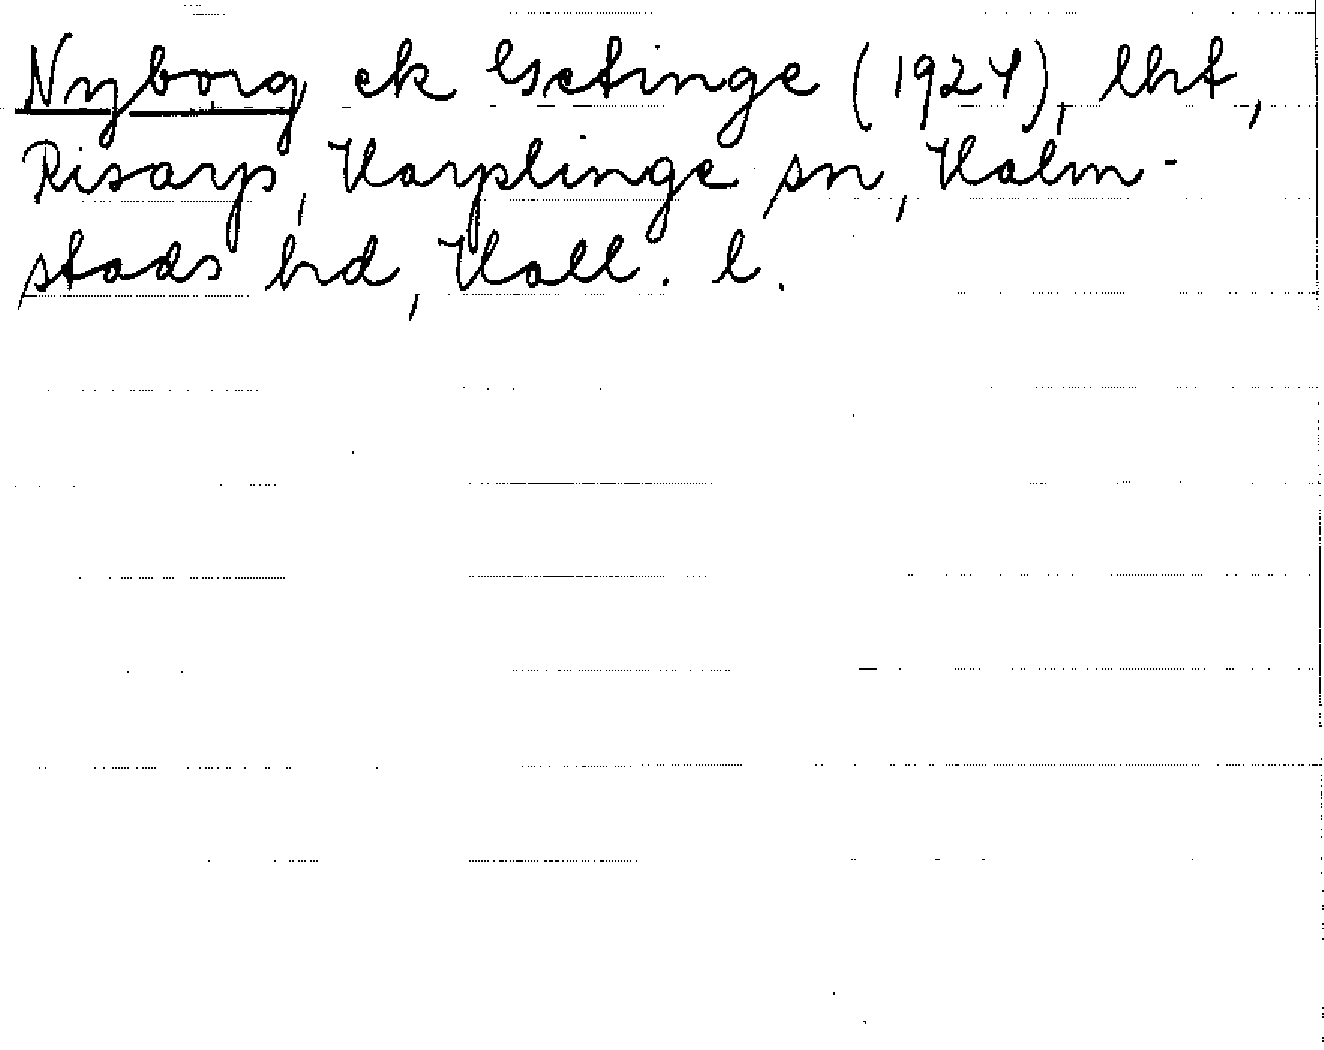 Nyborg ek Getinge (1924), lht,
Risarp, Harplinge sn, Halm-
stads hd, Hall. l.